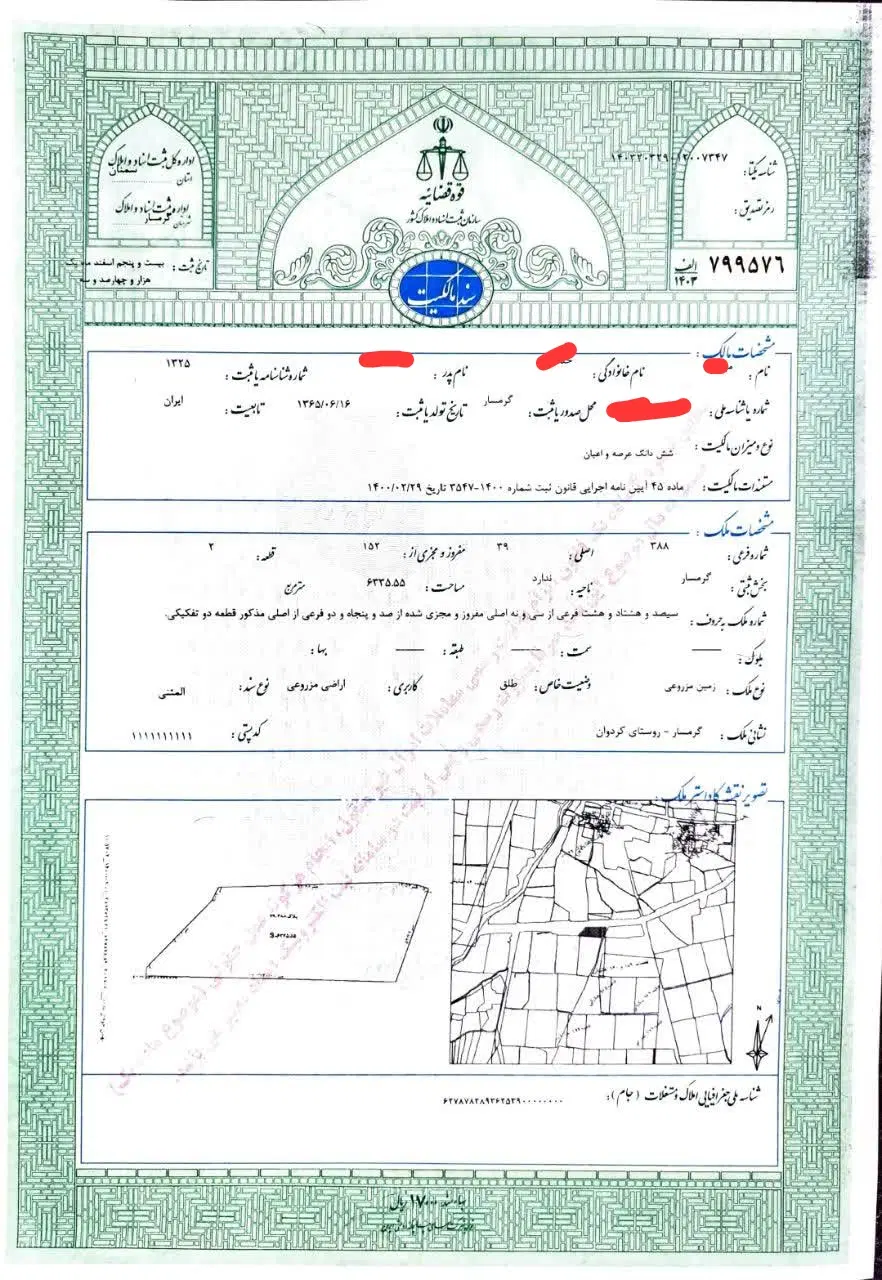 اداره کل ثبت اسناد و املاک
استان سمنان
اداره ثبت اسناد و املاک
شهرستان گرمسار
تاریخ ثبت: بیست و پنجم اسفند ماه یک
هزار و چهارصد و سه
قوه قضائیه
سازمان ثبت اسناد و املاک کشور
سند مالکیت
شناسه یکتا:
رمز تصدیق:
۷۹۹۵۷۶ الف ۱۴۰۳
مشخصات مالک:
نام: نام خانوادگی: نام پدر: شماره شناسنامه یا ثبت: ۱۳۲۵
شماره یا شناسه ملی: محل صدور یا ثبت: گرمسار تاریخ تولد یا ثبت: ۱۳۶۵/۰۶/۱۶ تابعیت: ایران
نوع و میزان مالکیت: شش دانگ عرصه و اعیان
مستندات مالکیت: ماده ۴۵ آیین نامه اجرایی قانون ثبت شماره ۱۴۰۰-۳۵۴۷ تاریخ ۱۴۰۰/۰۲/۲۹
مشخصات ملک:
شماره فرعی: ۳۸۸ اصلی: ۳۹ مفروز و مجزی از: ۱۵۲ قطعه: ۲
بخش ثبتی: گرمسار ناحیه: ندارد مساحت: ۶۳۳۵.۵۵ مترمربع
شماره ملک به حروف: سیصد و هشتاد و هشت فرعی از سی و نه اصلی مفروز و مجزی شده از صد و پنجاه و دو فرعی از اصلی مذکور قطعه دو تفکیکی.
بلوک: سمت: طبقه: بها:
نوع ملک: زمین مزروعی وضعیت خاص: طلق کاربری: اراضی مزروعی نوع سند: المثنی
نشانی ملک: گرمسار - روستای کردوان کدپستی: ۱۱۱۱۱۱۱۱۱۱
تصویر نقشه کاداستر ملک:
N
شناسه ملی جغرافیایی املاک و مستغلات (جام):